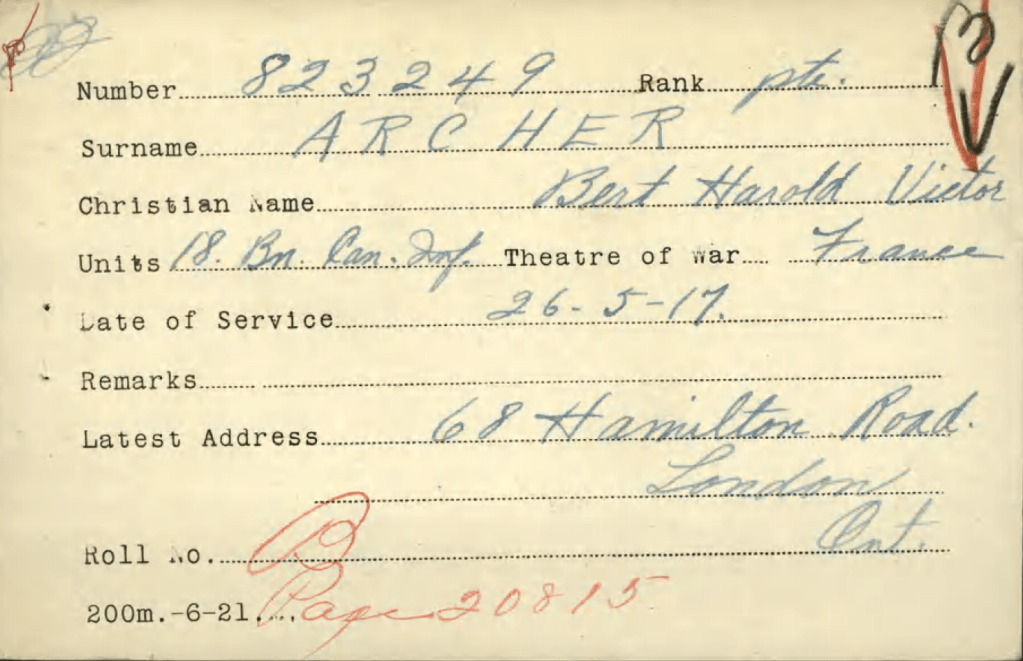 Number 823249 Rank pte.
Surname ARCHER
Christian Name Bert Harold Victor
Units 18. Bn. Can. Inf. Theatre of War France
Date of Service 26-5-17.
Remarks
Latest Address 68 Hamilton Road.
London
Ont.
Roll No. B
200m.-6-21. Page 20815